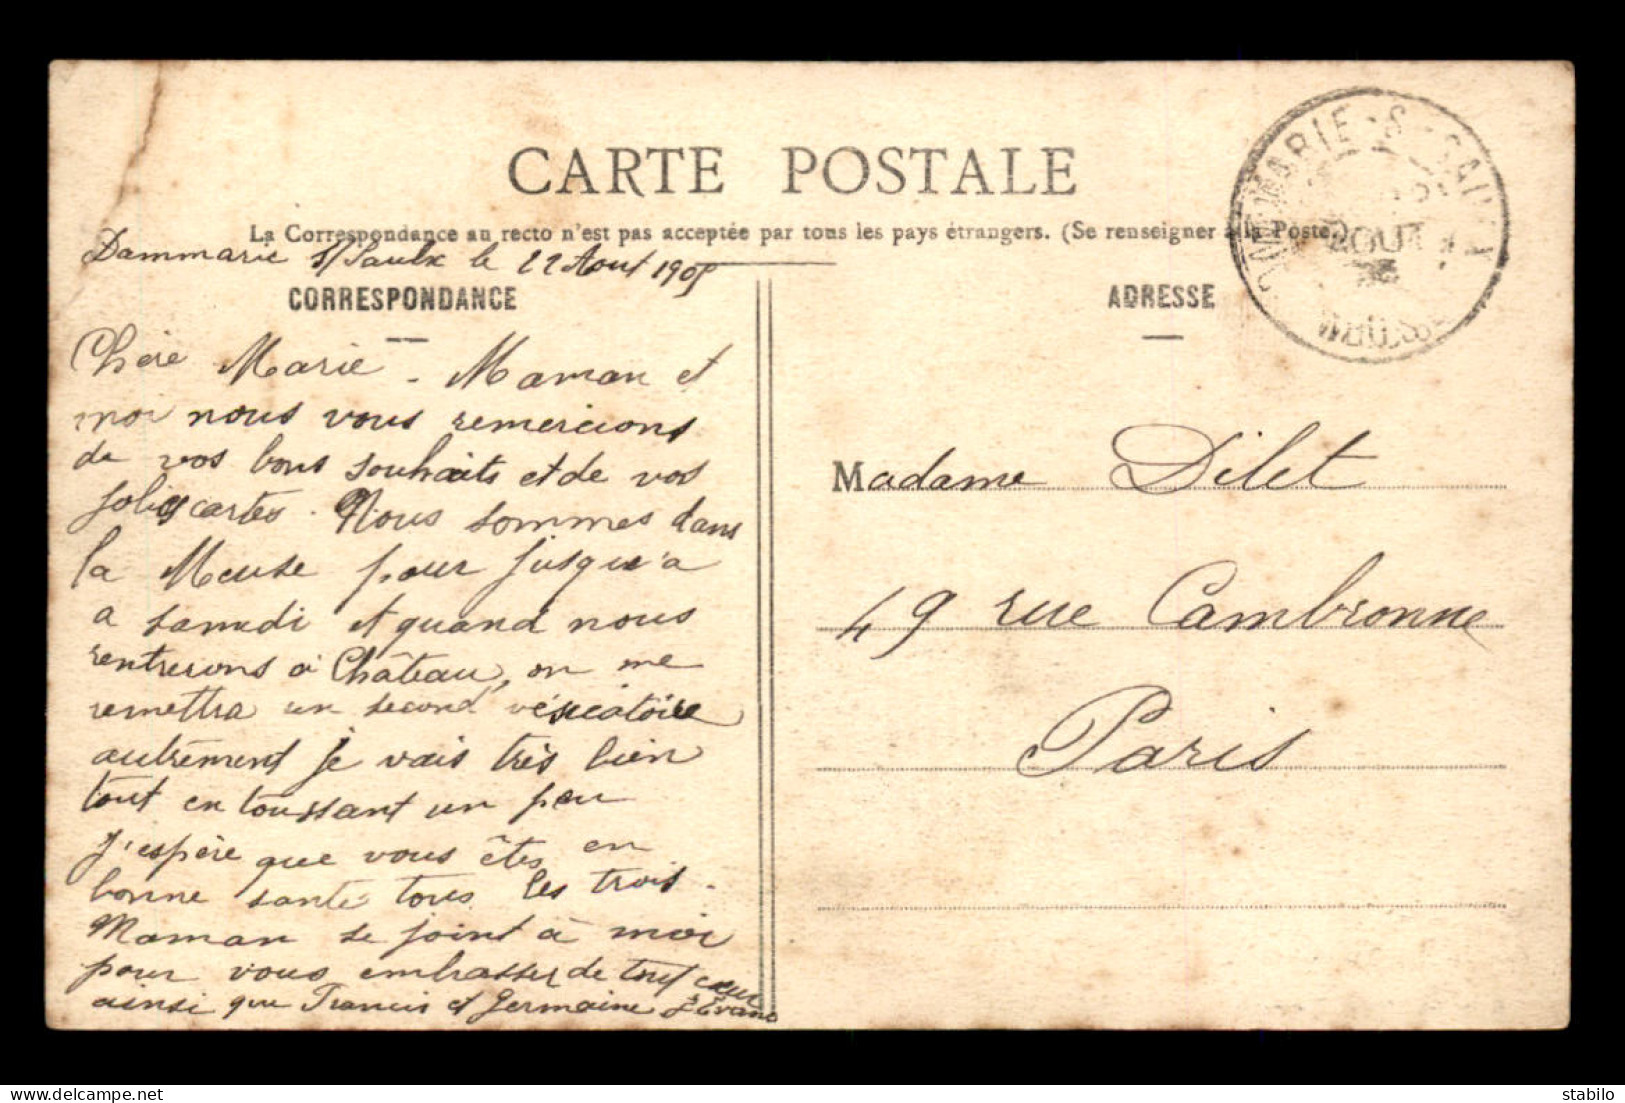 CARTE POSTALE
La Correspondance au recto n'est pas acceptée par tous les pays étrangers. (Se renseigner à la Poste.)
Dammarie s/Saulx le 22 Aout 1905
CORRESPONDANCE
Chère Marie - Maman et
moi nous vous remercions
de vos bons souhaits et de vos
jolies cartes. Nous sommes dans
la Meuse pour jusqu'a
a samedi et quand nous
rentrerons à Château, on me
remettra un second vésicatoire
autrement je vais très bien
tout en toussant un peu
j'espère que vous êtes en
bonne santé tous les trois.
Maman se joint à moi
pour vous embrasser de tout cœur
ainsi que Francis et Germaine
ADRESSE
DAMMARIE-S-SAULX
AOUT
MEUSE
Madame Dilet
49 rue Cambronne
Paris
stabilo
www.delcampe.net